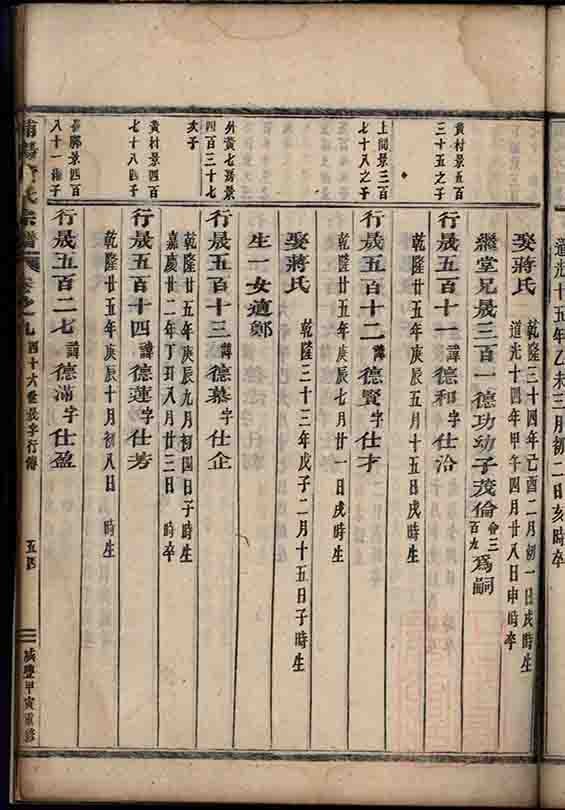 道光十五年乙未三月初二日亥時卒
娶蔣氏 乾隆三十四年己酉二月初一日戌時生
道光十四年甲午四月廿八日申時卒
繼堂兄晟三百一德功幼子茂倫 會三百九 為嗣
黃村景五百三十五之子
行晟五百十一 諱 德和 字 仕洽
乾隆廿五年庚辰五月十五日戌時生
上間景三百七十八之子
行晟五百十二 諱 德賢 字 仕才
乾隆廿五年庚辰七月廿一日戌時生
娶蔣氏 乾隆三十三年戊子二月十五日子時生
生一女適鄭
外黃七房景四百三十七次子
行晟五百十三 諱 德恭 字 仕企
乾隆廿五年庚辰九月初四日子時生
嘉慶廿二年丁丑八月廿三日 時卒
黃村景四百七十八四子
行晟五百十四 諱 德蓮 字 仕芳
乾隆廿五年庚辰十月初八日 時生
景四百八十一 子
行晟五百二七 諱 德滿 字 仕盈
氏宗譜 卷之九 四十六世晟字行傳 五四 咸豐甲寅重修